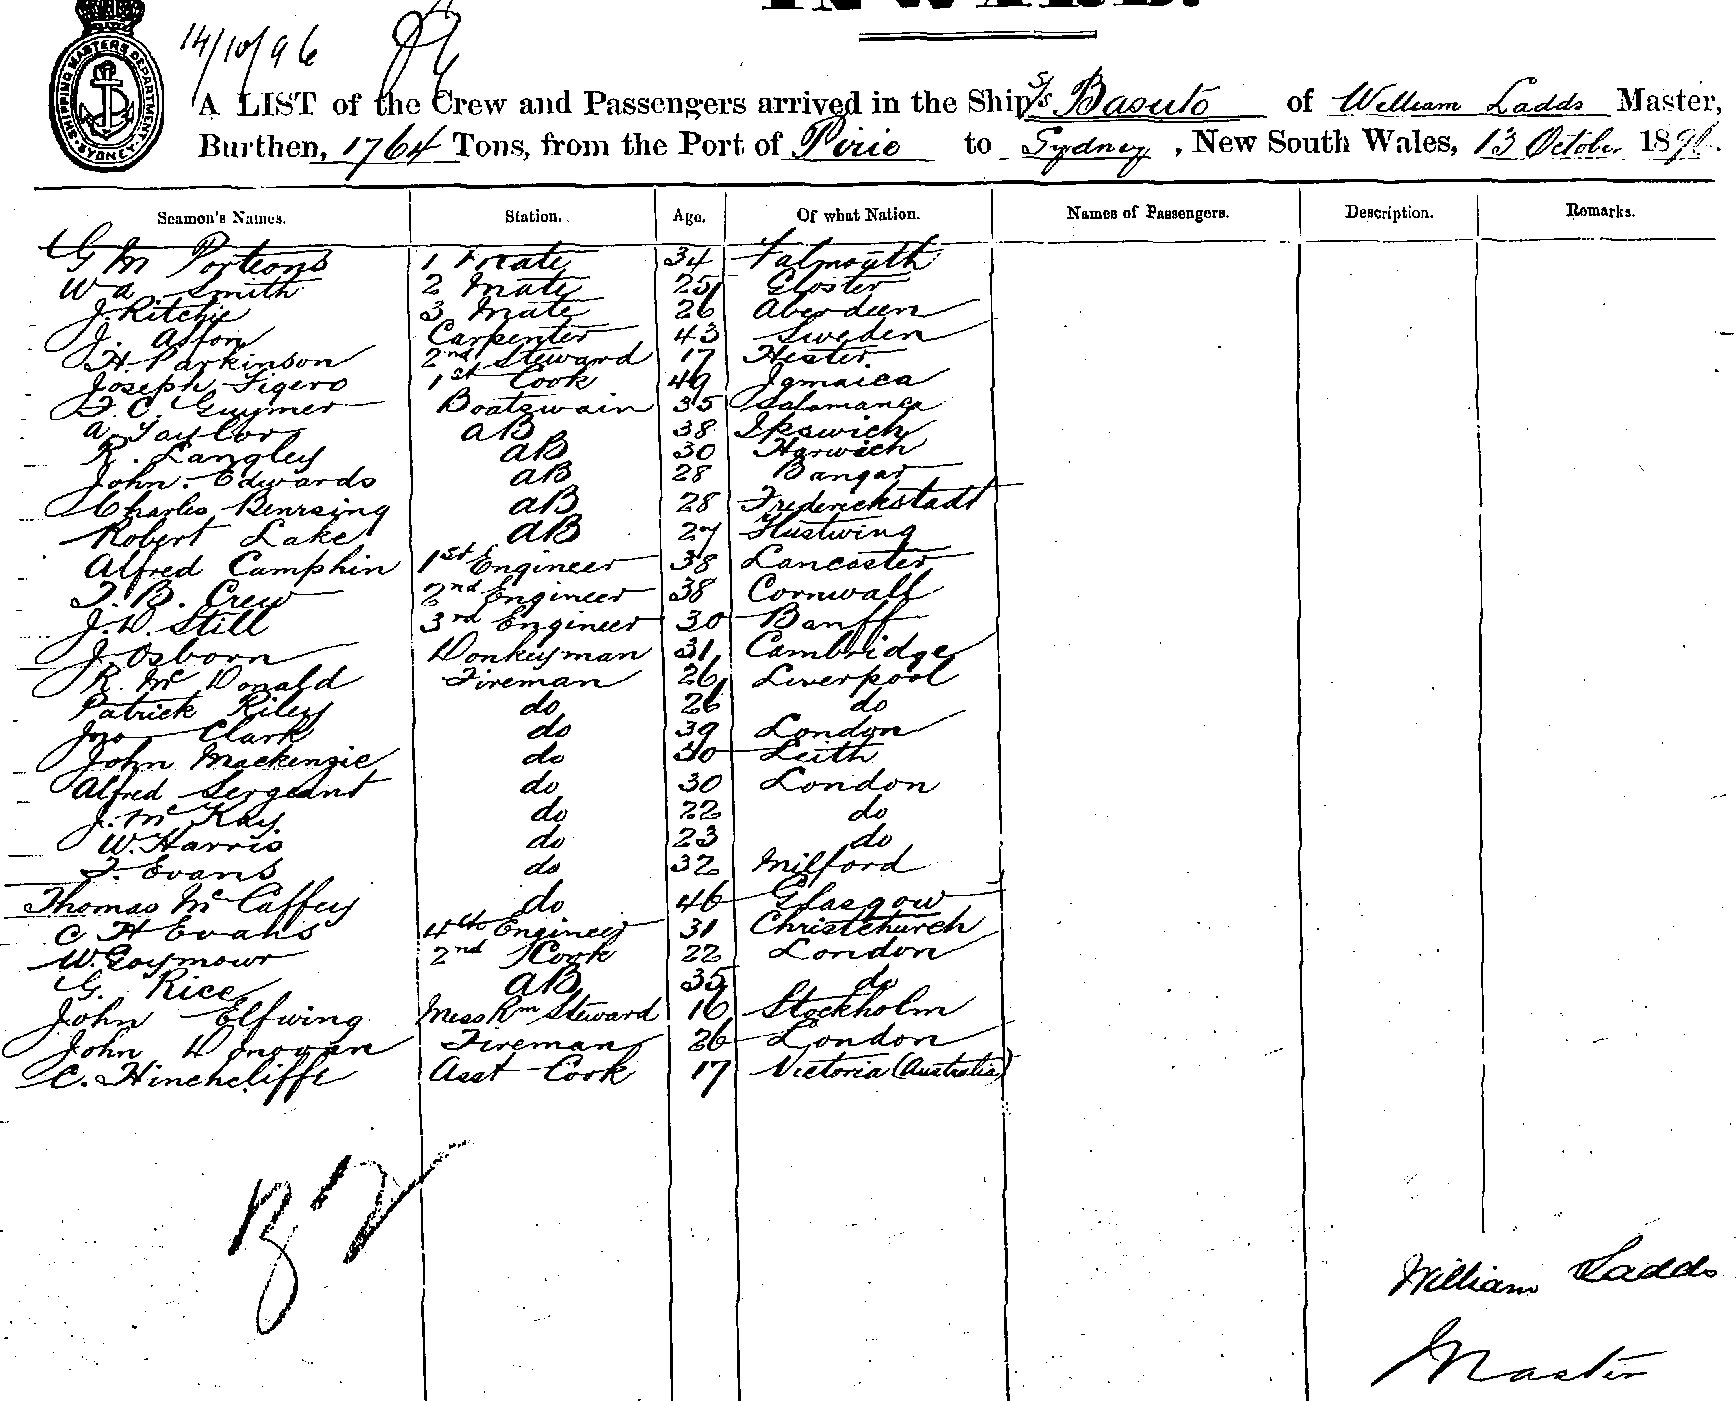 INWARD.
SHIPPING MASTERS DEPARTMENT SYDNEY
14/10/96
A LIST of the Crew and Passengers arrived in the Ship S/s Basuto of William Ladds Master,
Burthen, 1764 Tons, from the Port of Pirie to Sydney, New South Wales, 13 October 1896.
Seamen's Names. Station. Age. Of what Nation. Names of Passengers. Description. Remarks.
G M Porteous 1 Mate 34 Falmouth
W a Smith 2 Mate 25 Gloster
J. Ritchie 3 Mate 26 Aberdeen
J. Carpenter 43 Sweden
H. Parkinson 2nd Steward 17 Hester
Joseph Figero 1st Cook 49 Jamaica
F. C. Guymer Boatswain 35 Salamanca
A Taylor AB 38 Ipswich
R. Langley AB 30 Harwich
John Edwards AB 28 Bangor
Charles Benrsing AB 28 Frederickstadt
Robert Lake AB 27
Alfred Camphin 1st Engineer 38 Lancaster
T. B. Crew 2nd Engineer 38 Cornwall
J. W. Still 3rd Engineer 30 Banff
J. Osborn Donkeyman 31 Cambridge
R. McDonald Fireman 26 Liverpool
Patrick Riley do 26 do
Jno Clark do 39 London
John Mackenzie do 30 Leith
Alfred Sergeant do 30 London
J. McKay do 22 do
W. Harris do 23 do
T. Evans do 32 Milford
Thomas McCaffery do 46 Glasgow
C H Evans 4th Engineer 31 Christchurch
W. Goymour 2nd Cook 22 London
G. Rice AB 35 do
John Elfwing Mess Rm Steward 16 Stockholm
John Donovan Fireman 26 London
C. Hinchcliffe Asst Cook 17 Victoria (Australia)
William Ladds
Master